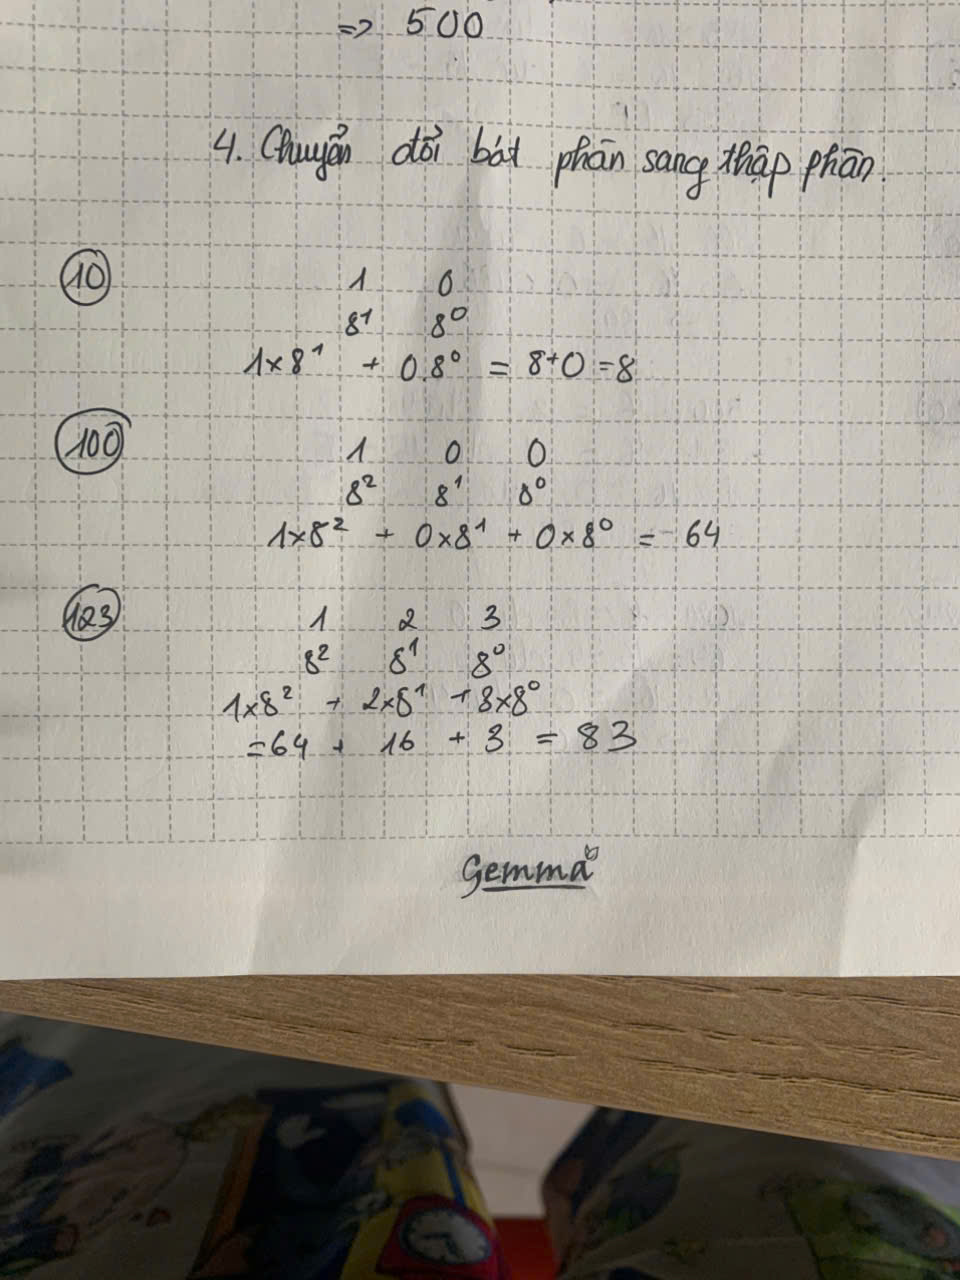 => 500
4. Chuyển đổi bát phân sang thập phân.
10
1 0
8¹ 8⁰
1×8¹ + 0.8⁰ = 8+0 = 8
100
1 0 0
8² 8¹ 8⁰
1×8² + 0×8¹ + 0×8⁰ = 64
123
1 2 3
8² 8¹ 8⁰
1×8² + 2×8¹ + 3×8⁰
= 64 + 16 + 3 = 83
Gemma